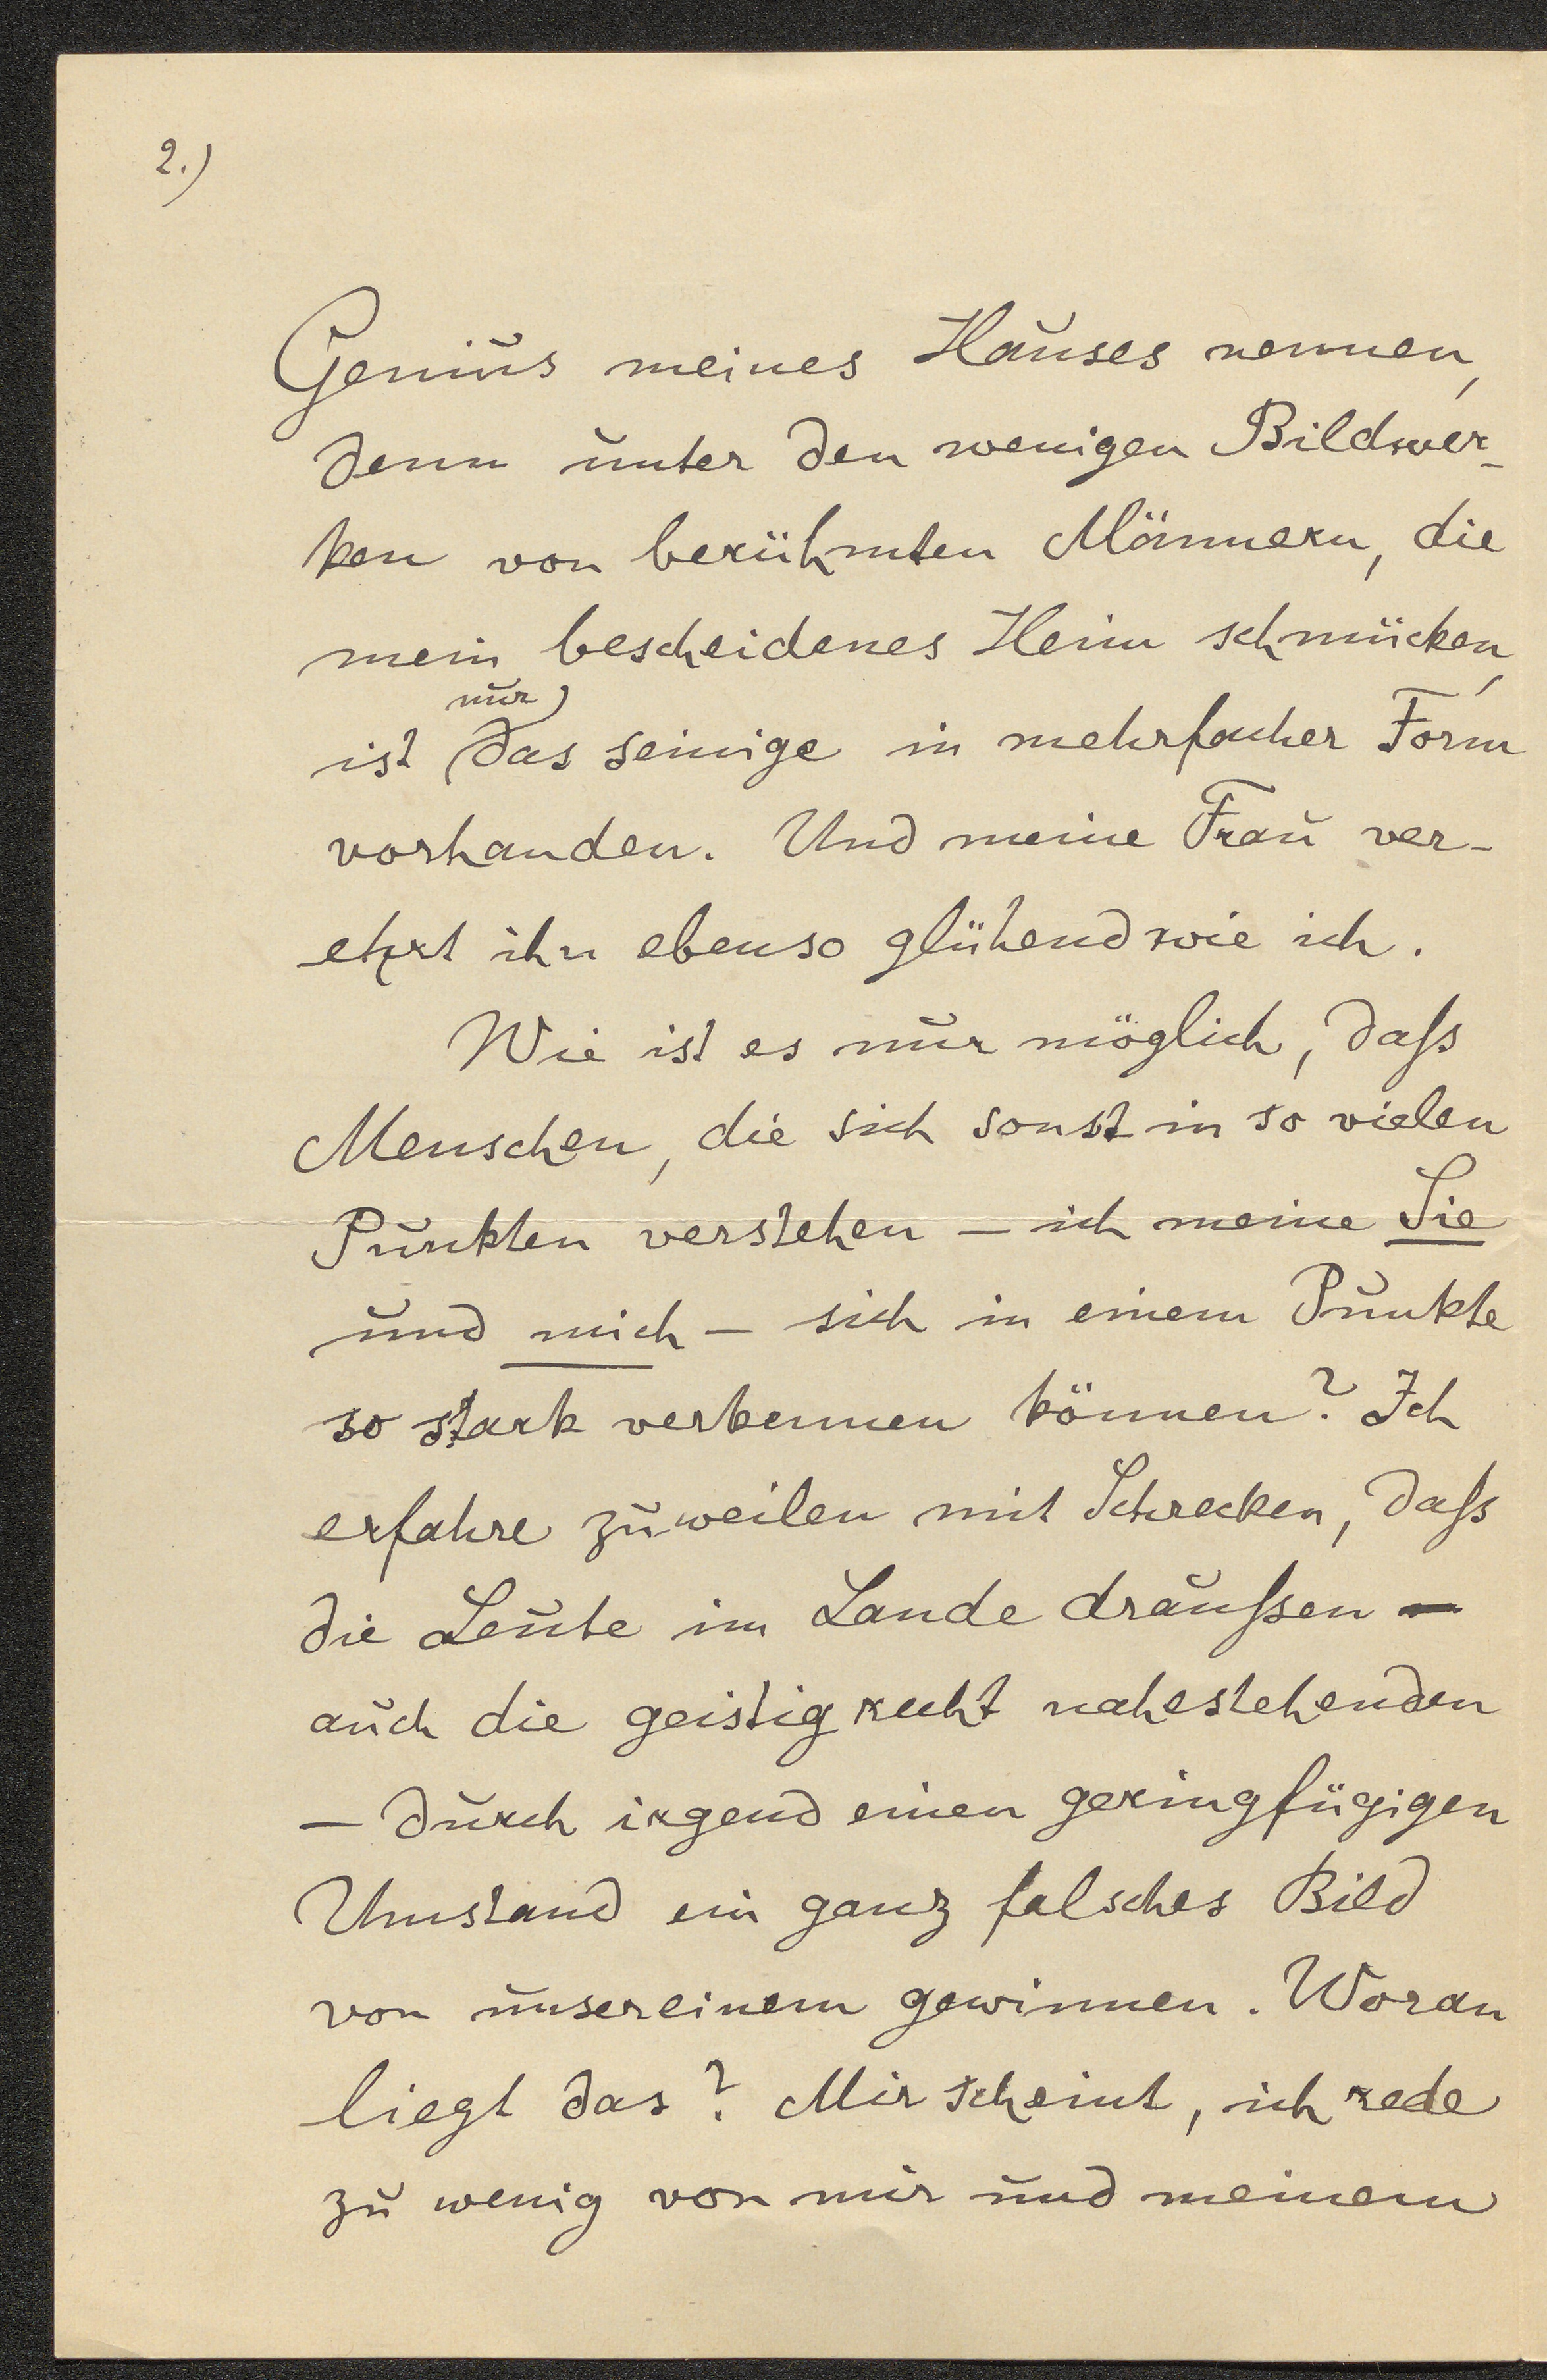 2.)
Genius meines Hauses nennen,
denn unter den wenigen Bildwer-
ken von berühmten Männern, die
mein bescheidenes Heim schmücken,
nur
ist das seinige in mehrfacher Form
vorhanden. Und meine Frau ver-
ehrt ihn ebenso glühend wie ich.
Wie ist es nur möglich, daſs
Menschen, die sich sonst in so vielen
Punkten verstehen – ich meine Sie
und mich – sich in einem Punkte
so stark verkennen können? Ich
erfahre zuweilen mit Schrecken, daſs
die Leute im Lande drauſsen –
auch die geistig recht nahestehenden
– durch irgend einen geringfügigen
Umstand ein ganz falsches Bild
von unsereinem gewinnen. Woran
liegt das? Mir scheint, ich rede
zu wenig von mir und meinem